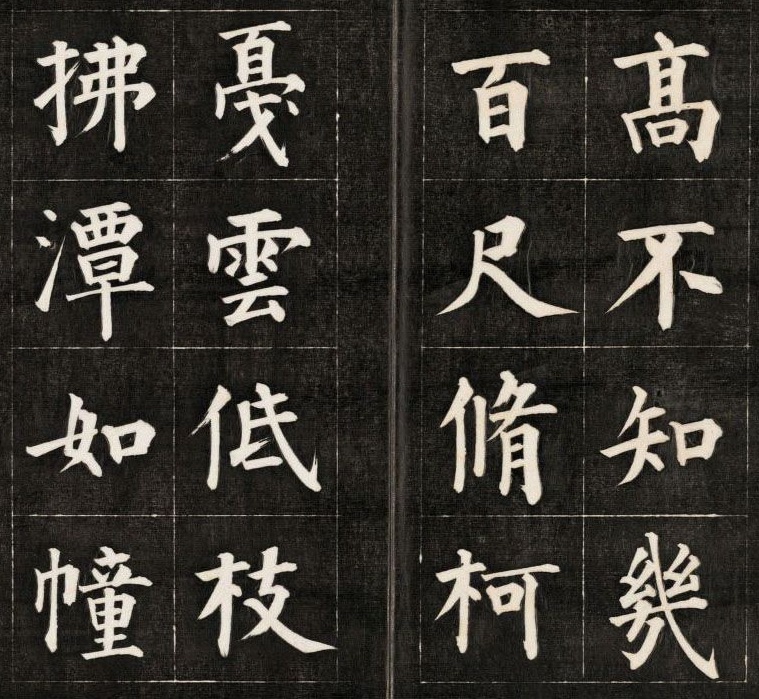 髙不知幾
百尺脩柯
戛雲低枝
拂潭如幢